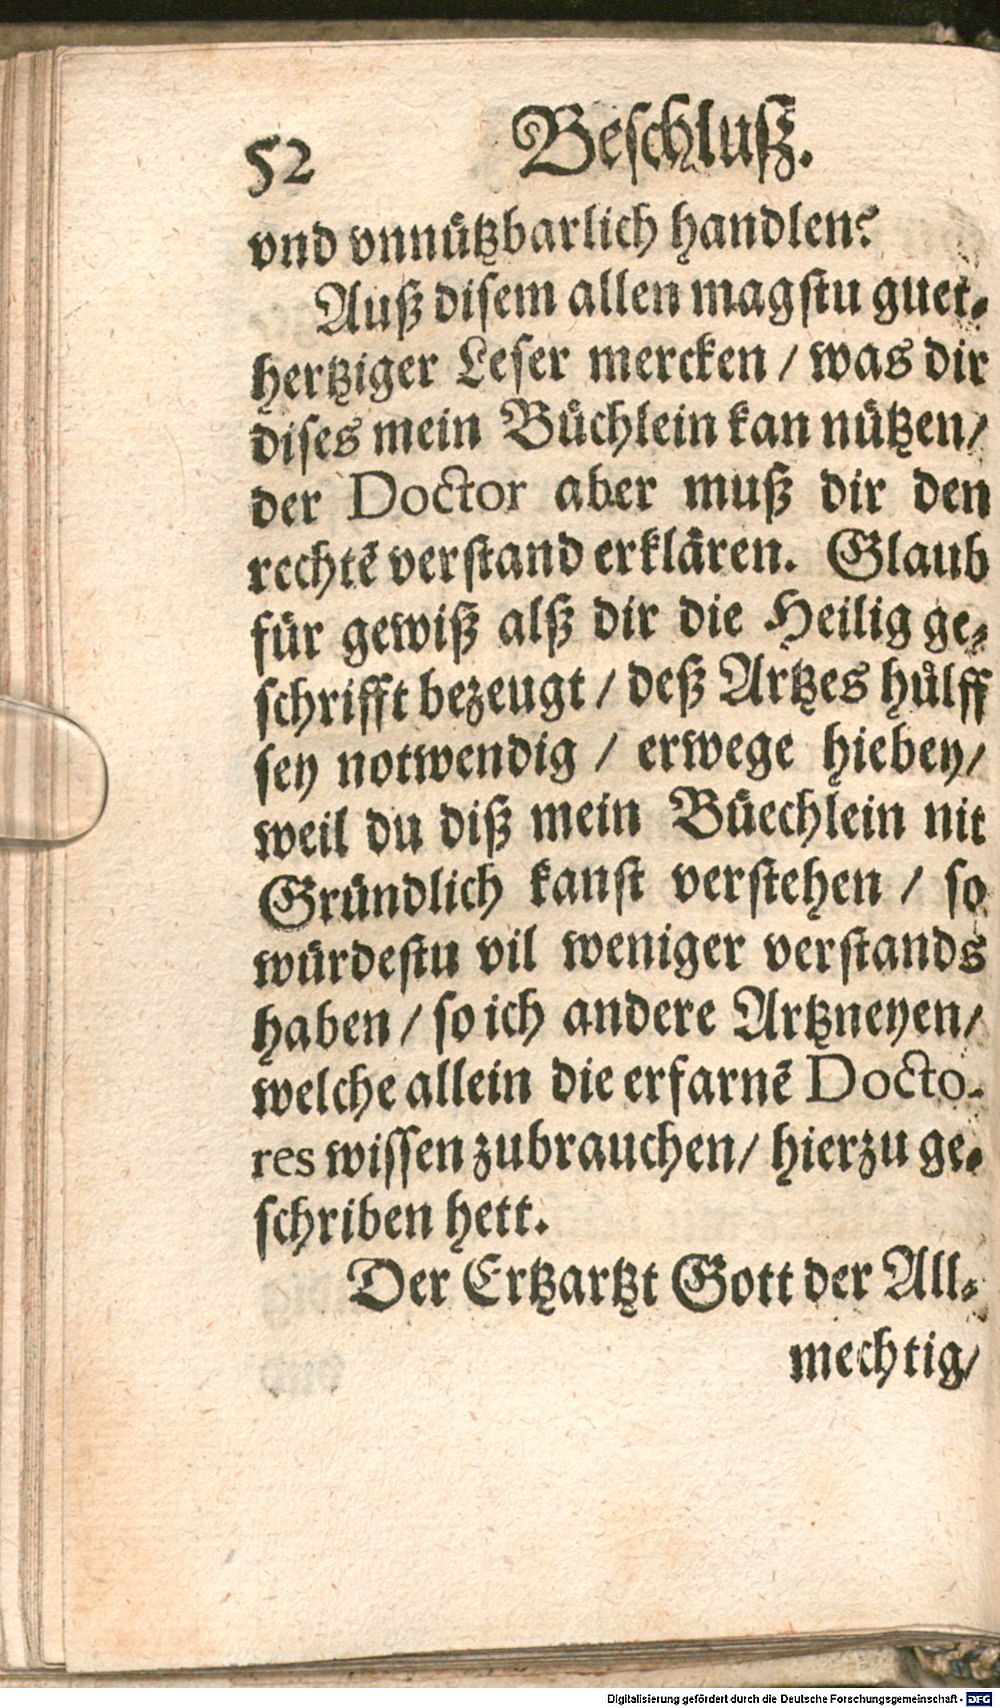 52 Beschluß.
vnd vnnützbarlich handlen?
Auß disem allen magstu guet-
hertziger Leser mercken / was dir
dises mein Büchlein kan nützen /
der Doctor aber muß dir den
rechtē verstand erklären. Glaub
für gewiß alß dir die Heilig ge-
schrifft bezeugt / deß Artzes hülff
sey notwendig / erwege hiebey /
weil du diß mein Büechlein nit
Gründlich kanst verstehen / so
würdestu vil weniger verstands
haben / so ich andere Artzneyen /
welche allein die erfarnē Docto-
res wissen zubrauchen / hierzu ge-
schriben hett.
Der Ertzartzt Gott der All-
mechtig /
Digitalisierung gefördert durch die Deutsche Forschungsgemeinschaft - DFG